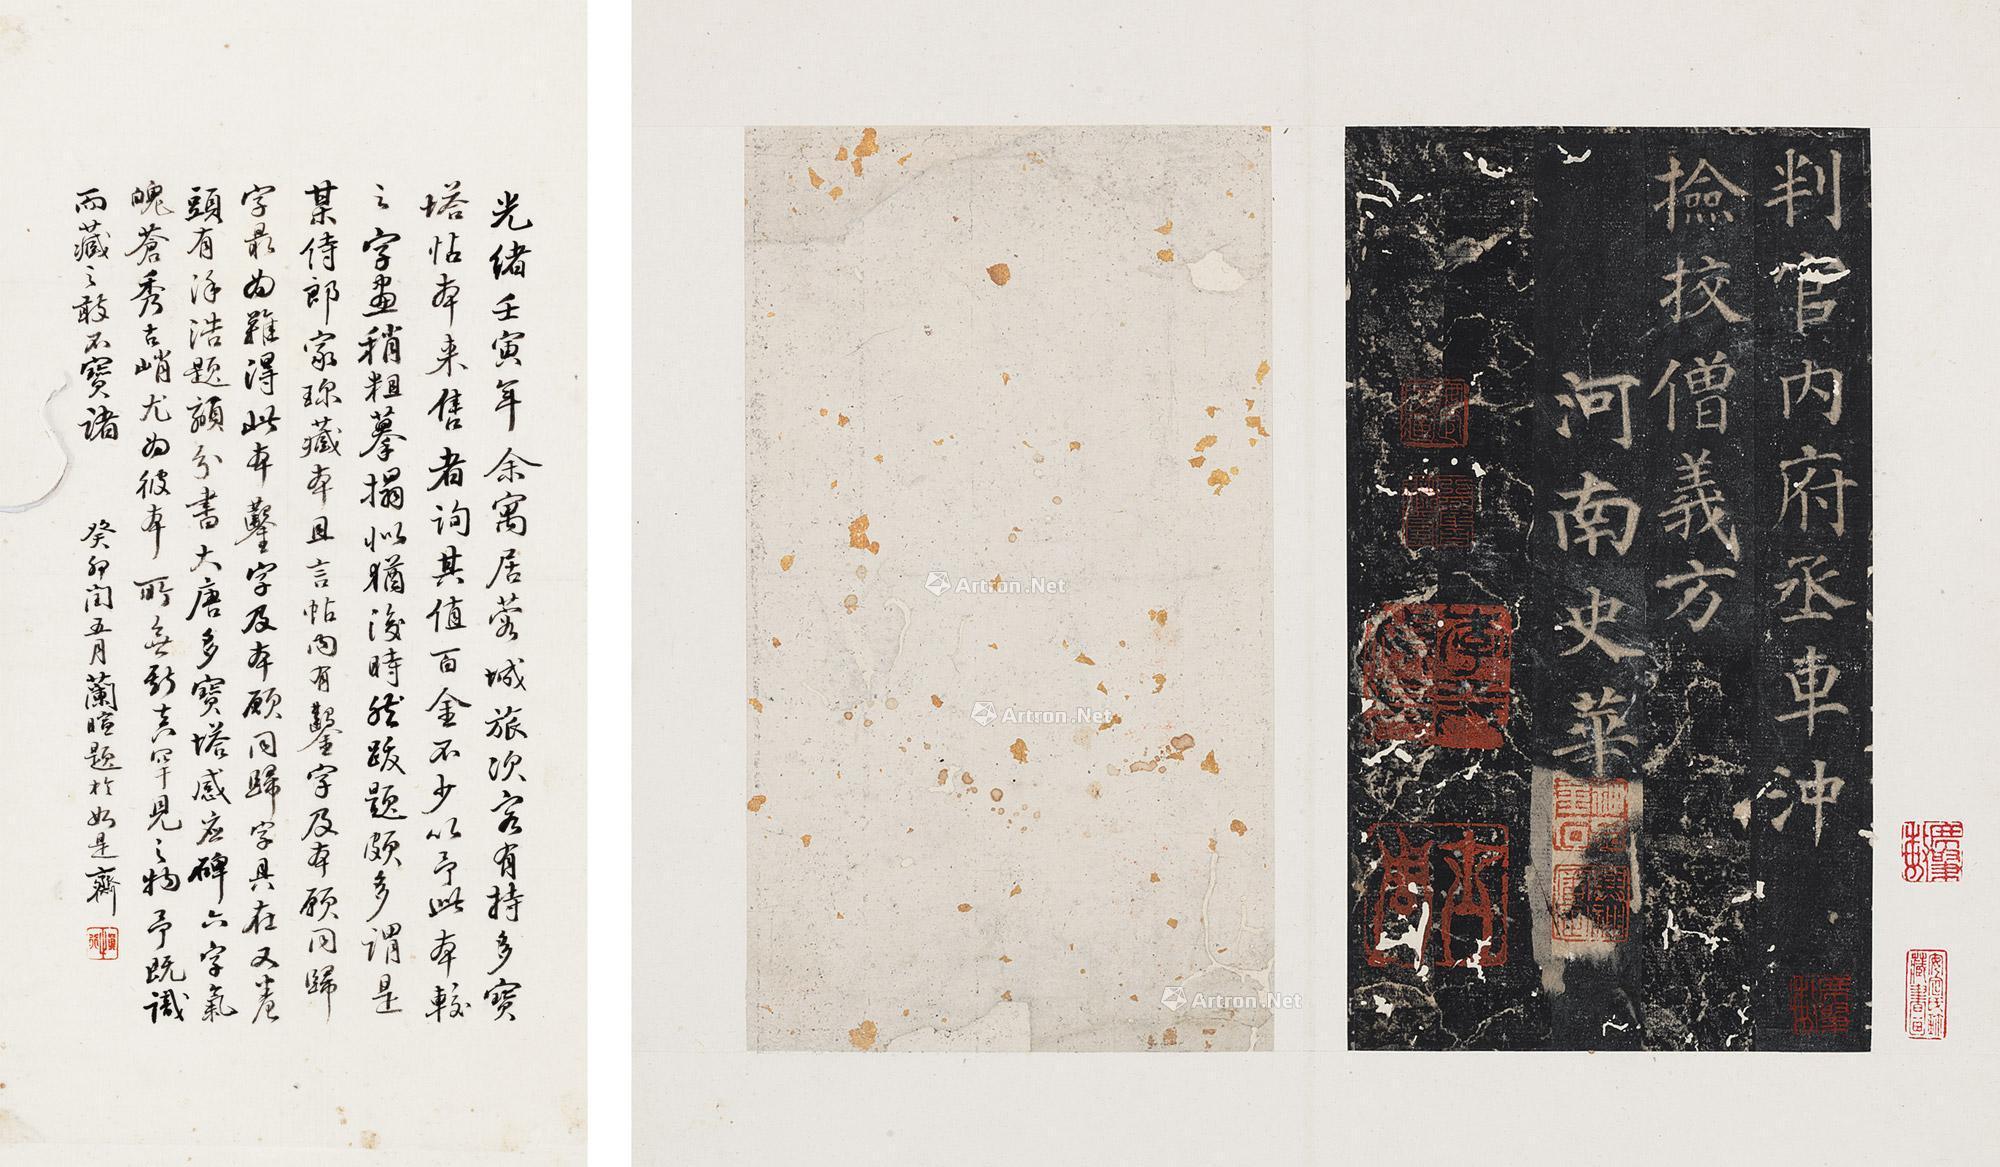 判官內府丞車沖
撿挍僧義方
河南史華
光緒壬寅年余寓居蓉城旅次客有持多寶
塔帖本来售者詢其值百金不少以予此本較
之字畫稍粗摹搨似猶後時然跋題頗多謂是
某侍郎家珎藏本且言帖內有鑿字及本願同歸
字最為難得此本鑿字及本願同歸字具在又卷
頭有徐浩題額分書大唐多寶塔感应碑六字氣
魄蒼秀古峭尤為彼本所無斯真罕見之物予既識
而藏之敢不寶諸
癸卯閏五月蘭暄題於如是齋
Artron.Net
Artron.Net
Artron.Net